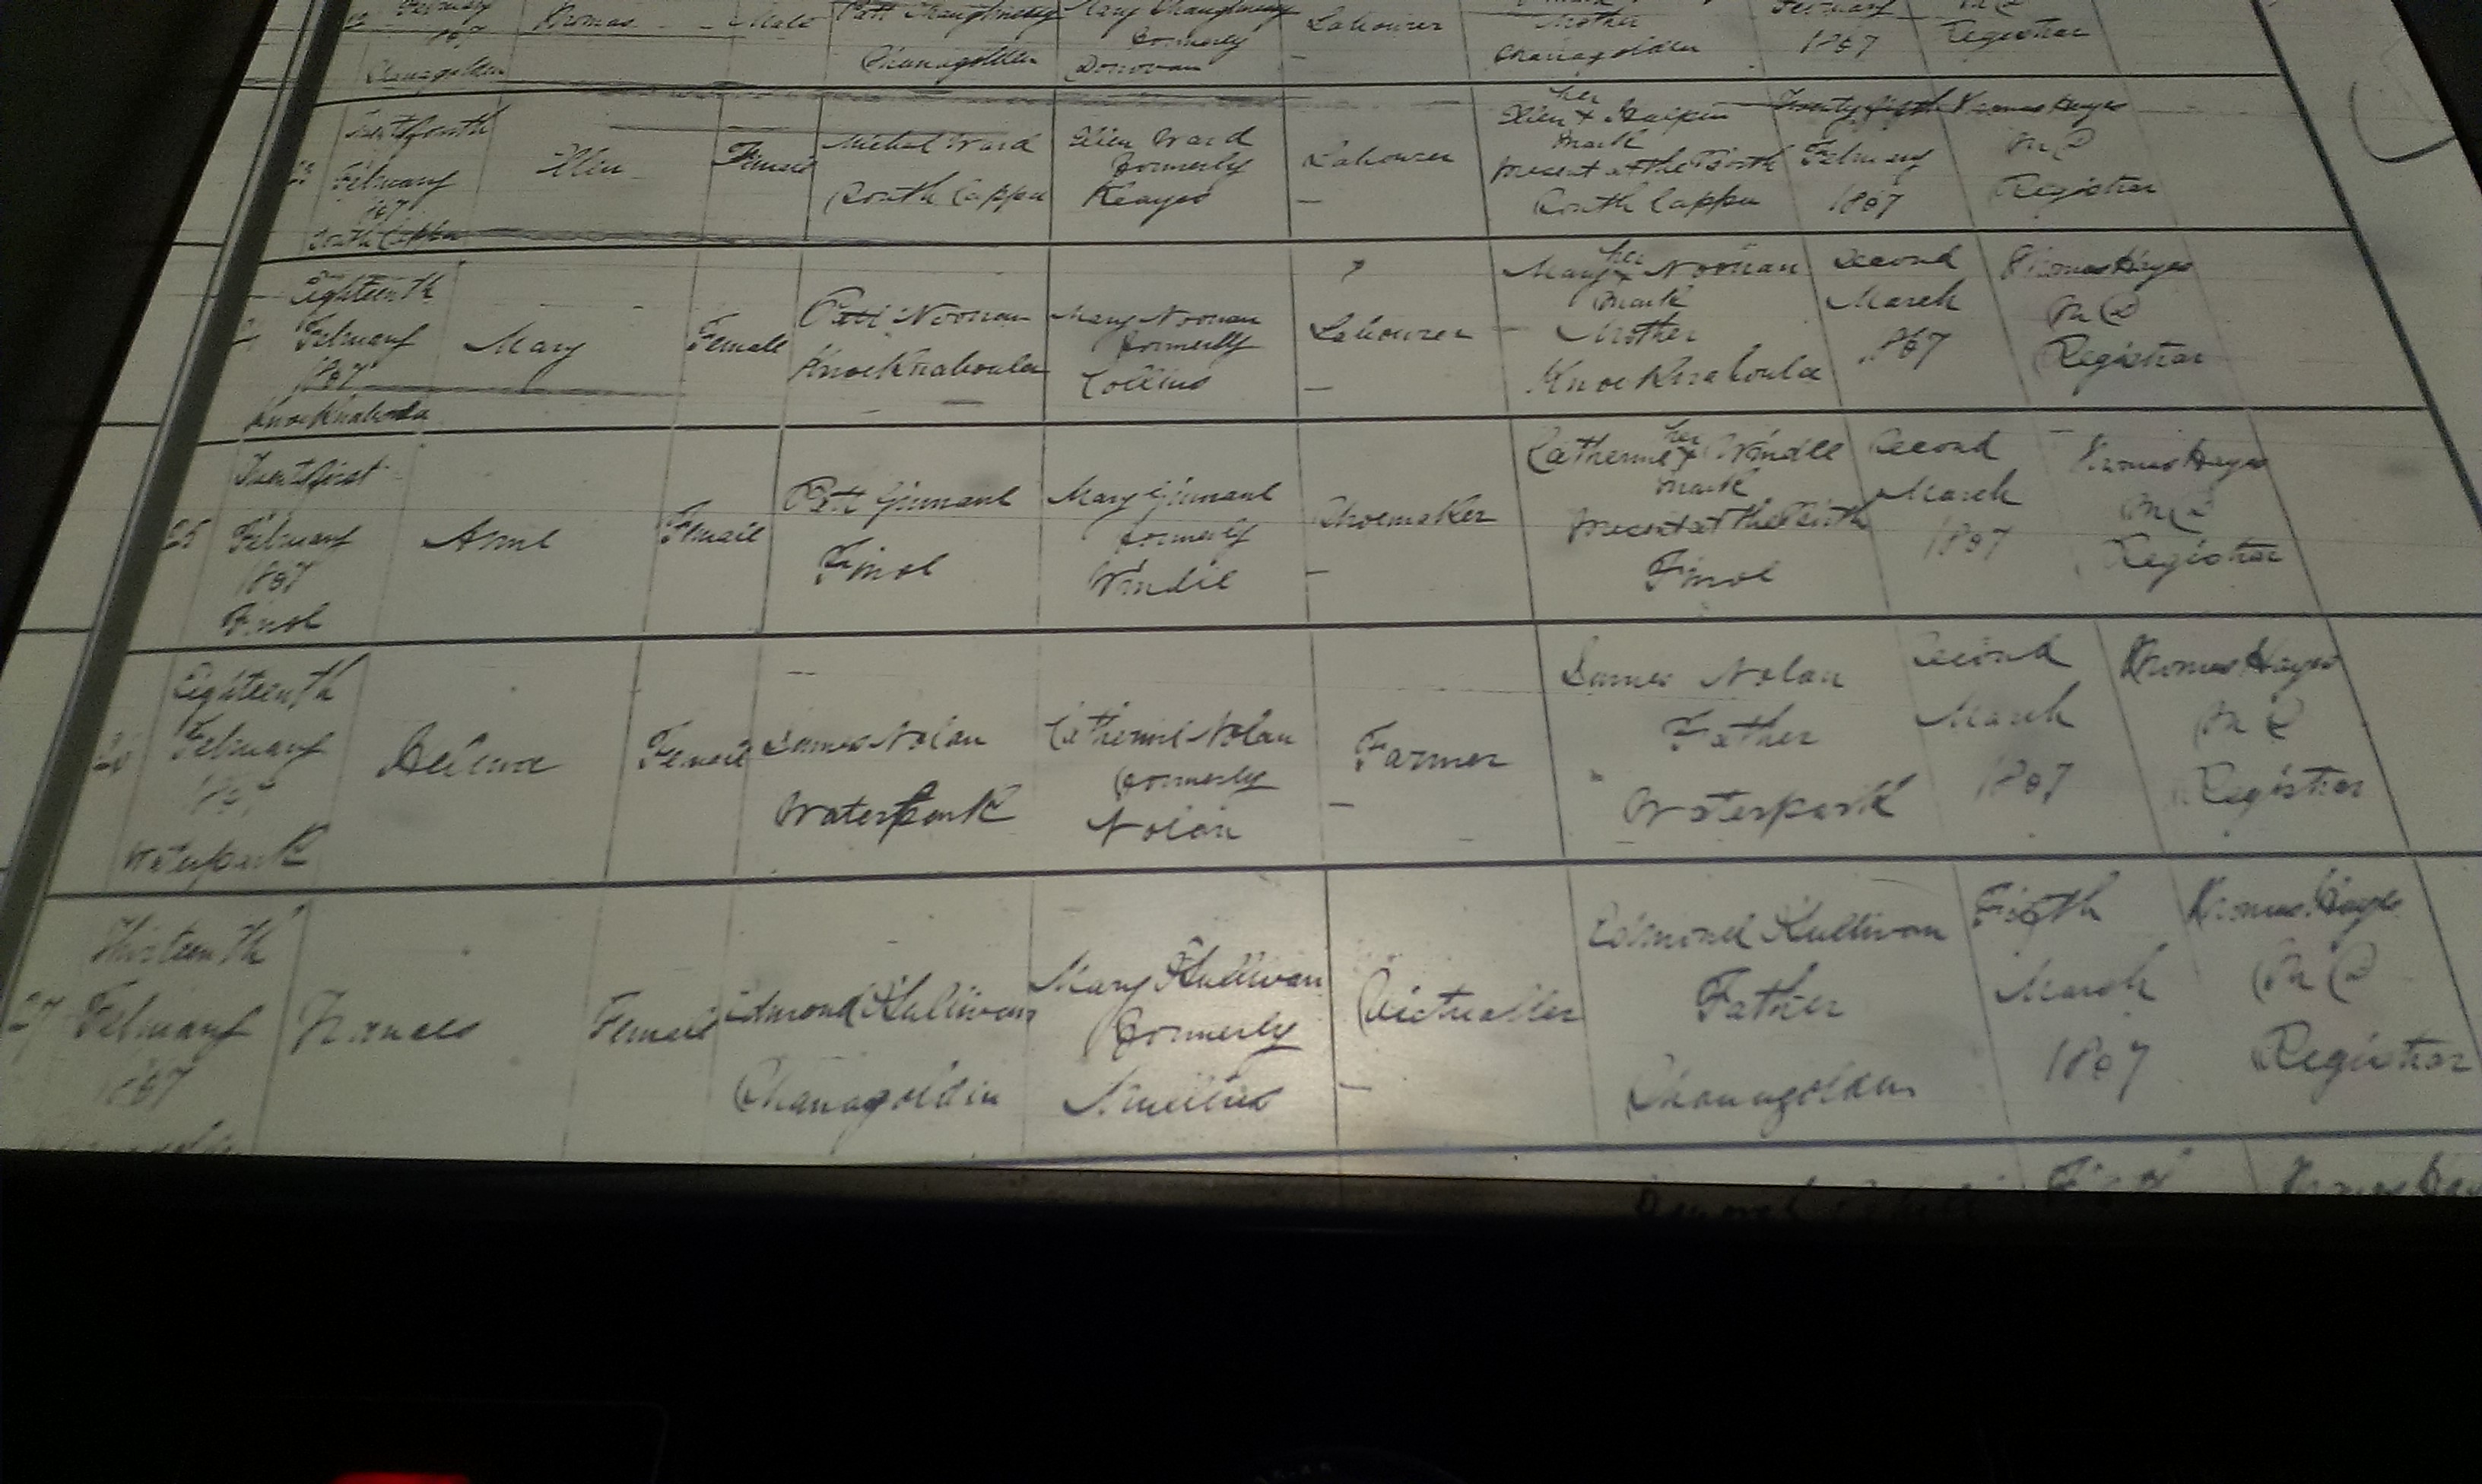 February Thomas Male Patt Shaughnessy Mary Shaughnessy Labourer Mother February Registrar
Shanagolden formerly Shanagolden 1867
Shanagolden Donovan
her
Twentyfourth Michal Ward Ellen Ward Ellen + Halpin Twentyfifth Thomas Hayes
mark
23 February Ellen Female formerly Labourer present at the Birth February
1867 South Cappa Keayes South Cappa 1867 Registrar
South Cappa
her
Eighteenth Mary + Noonan Second Thomas Hayes
mark
February Mary Female Patt Noonan Mary Noonan Labourer Mother March
1867 Knocknaboula formerly Knocknaboula 1867 Registrar
Knocknaboula Collins
her
Twentyfirst Catherine + Windle Second Thomas Hayes
mark
25 February Anne Female Patt Ginnane Mary Ginnane Shoemaker present at the Birth March
1867 Finol formerly Finol 1867 Registrar
Finol Windle
Eighteenth James Nolan Second Thomas Hayes
26 February Female James Nolan Catherine Nolan Farmer Father March
1867 Waterpark formerly Waterpark 1867 Registrar
Waterpark Nolan
Thirteenth Edmond Sullivan Fifth Thomas Hayes
27 February Frances Female Edmond Sullivan Mary Sullivan Victualler Father March
1867 Shanagolden formerly Shanagolden 1867 Registrar